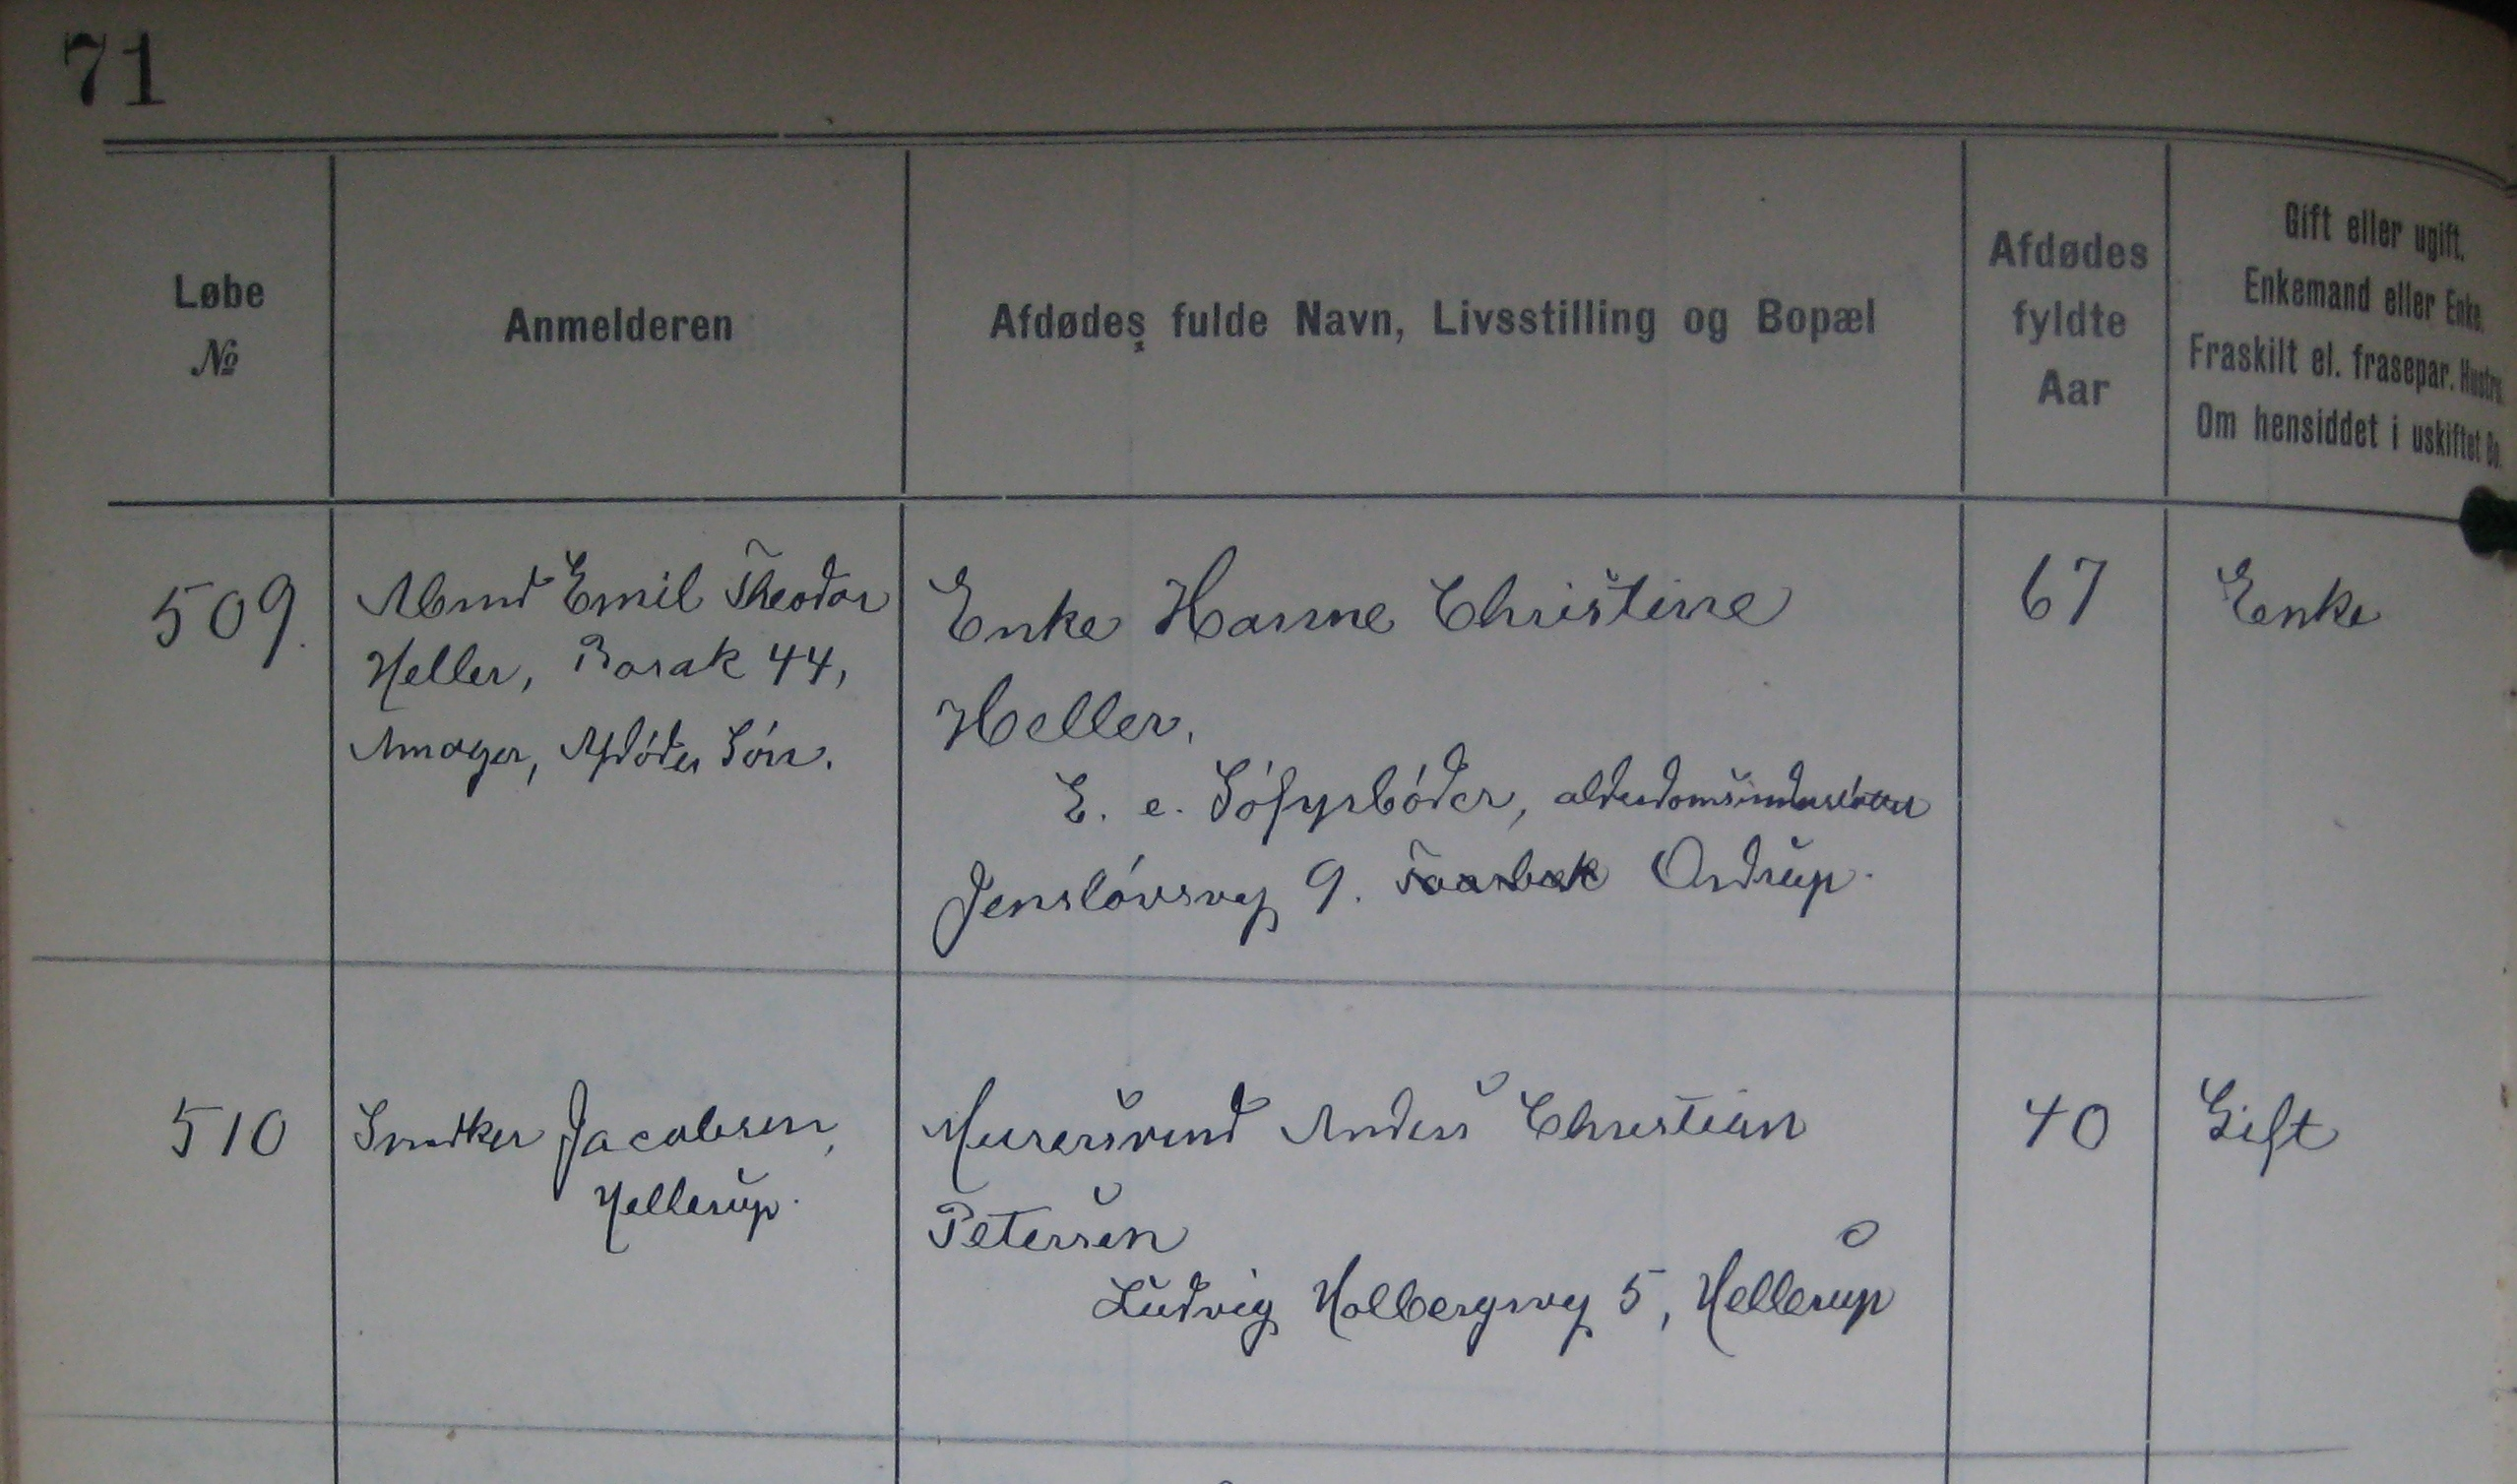 71
Løbe
№
Anmelderen
Afdødes fulde Navn, Livsstilling og Bopæl
Afdødes
fyldte
Aar
Gift eller ugift.
Enkemand eller Enke.
Fraskilt el. frasepar. Hustru.
Om hensiddet i uskiftet Bo.
509.
Emil Theodor
Heller, 44,
Amager, Afdødes Søn.
Enke Hanne Christine
Heller.
E. e. Søfyrbøder,
Jensløvsvej 9. Taarbæk Ordrup.
67
Enke
510
Snedker Jacobsen,
Hellerup.
Murersvend Anders Christian
Petersen
Ludvig Holbergsvej 5, Hellerup
40
Gift